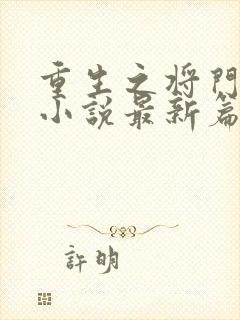 重生之将門
小説最新篇
許明